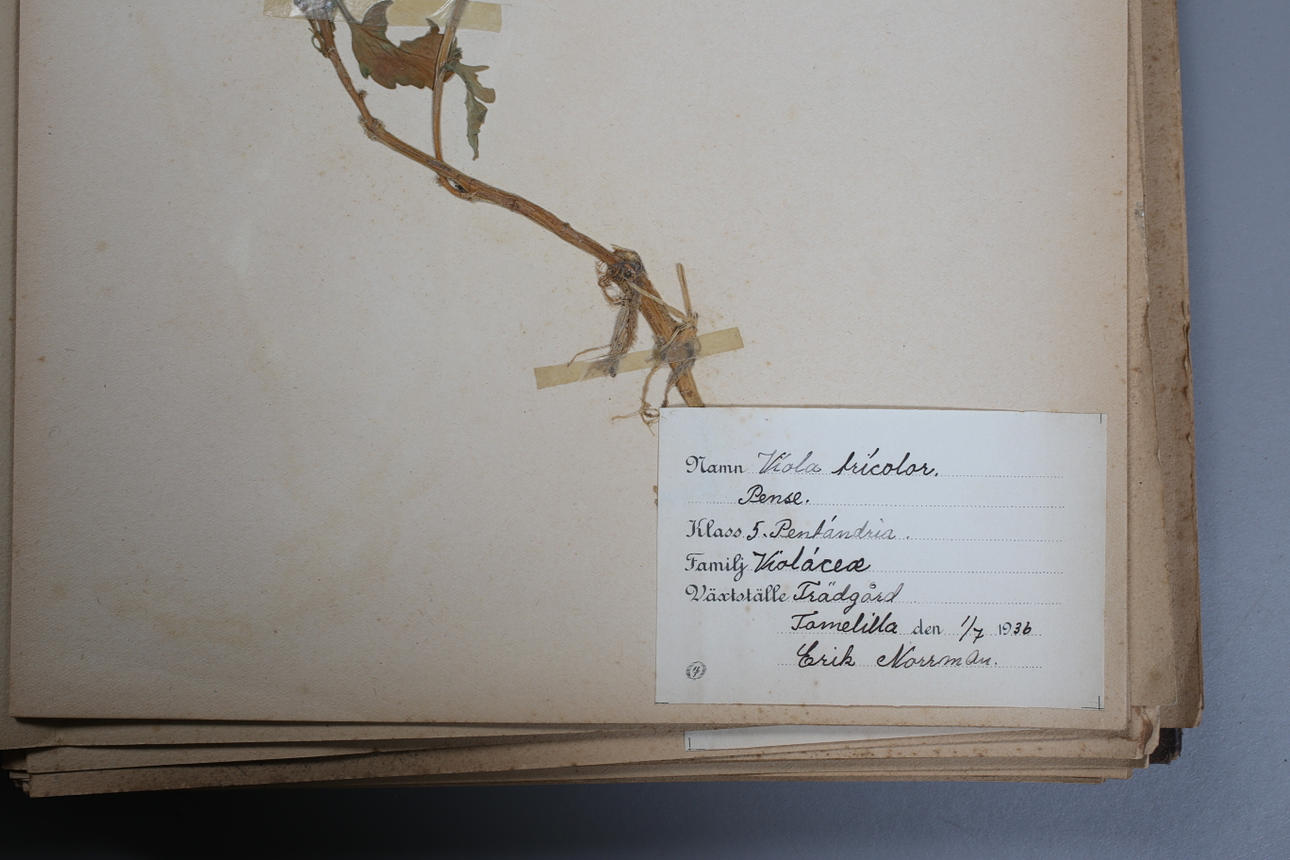 Namn Viola trícolor.
Pense.
Klass 5. Pentándria.
Familj Violáceæ
Växtställe Trädgård
Tomelilla den 1/7 1936
Erik Norrman.